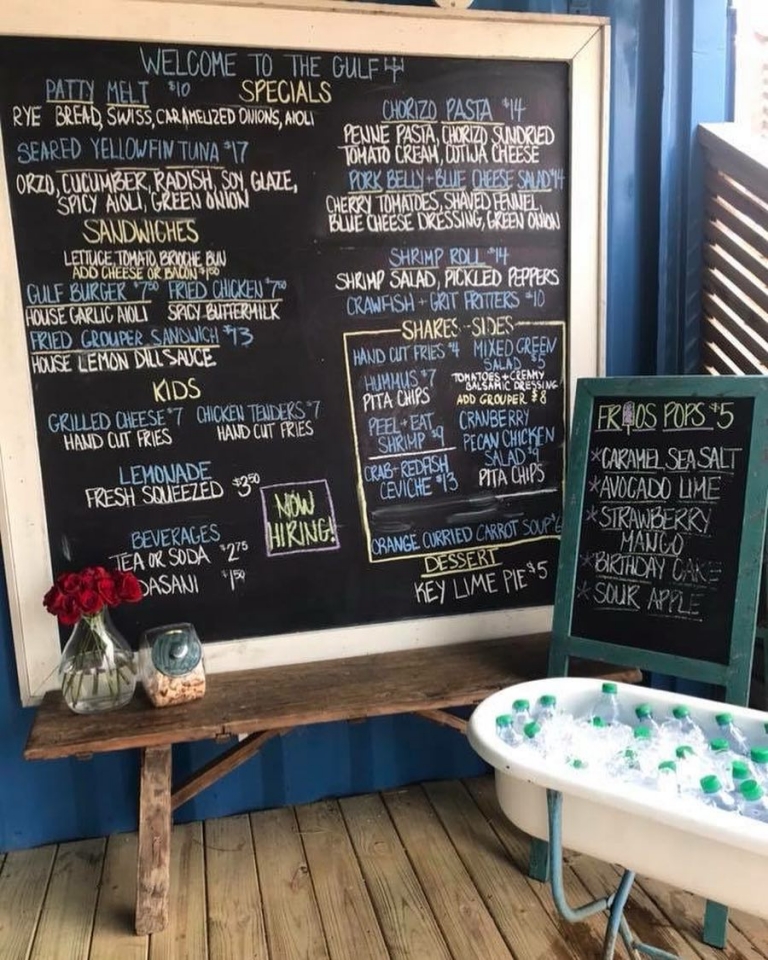 WELCOME TO THE GULF
SPECIALS
PATTY MELT $10
RYE BREAD, SWISS, CARAMELIZED ONIONS, AIOLI
SEARED YELLOWFIN TUNA $17
ORZO, CUCUMBER, RADISH, SOY GLAZE,
SPICY AIOLI, GREEN ONION
SANDWICHES
LETTUCE, TOMATO, BRIOCHE BUN
ADD CHEESE OR BACON $1.50
GULF BURGER $7.50 FRIED CHICKEN $7.50
HOUSE GARLIC AIOLI SPICY BUTTERMILK
FRIED GROUPER SANDWICH $13
HOUSE LEMON DILL SAUCE
KIDS
GRILLED CHEESE $7 CHICKEN TENDERS $7
HAND CUT FRIES HAND CUT FRIES
LEMONADE
FRESH SQUEEZED $3.50
BEVERAGES
TEA OR SODA $2.75
DASANI $1.50
NOW
HIRING!
CHORIZO PASTA $14
PENNE PASTA, CHORIZO SUNDRIED
TOMATO CREAM, COTIJA CHEESE
PORK BELLY + BLUE CHEESE SALAD $14
CHERRY TOMATOES, SHAVED FENNEL,
BLUE CHEESE DRESSING, GREEN ONION
SHRIMP ROLL $14
SHRIMP SALAD, PICKLED PEPPERS
CRAWFISH + GRIT FRITTERS $10
SHARES - SIDES
HAND CUT FRIES $4
HUMMUS $7
PITA CHIPS
PEEL + EAT
SHRIMP $9
CRAB + REDFISH
CEVICHE $13
MIXED GREEN
SALAD $5
TOMATOES + CREAMY
BALSAMIC DRESSING
ADD GROUPER $8
CRANBERRY
PECAN CHICKEN
SALAD $9
PITA CHIPS
ORANGE CURRIED CARROT SOUP $6
DESSERT
KEY LIME PIE $5
FRIOS POPS $5
*CARAMEL SEA SALT
*AVOCADO LIME
*STRAWBERRY
MANGO
*BIRTHDAY CAKE
*SOUR APPLE